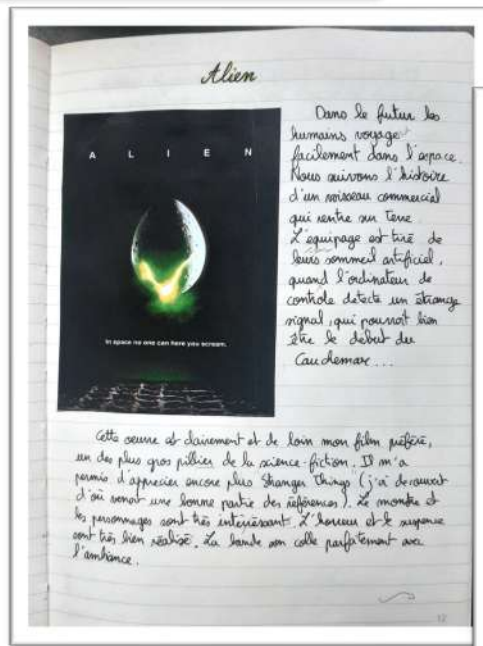 Alien
A L I E N
In space no one can here you scream.
Dans le futur les
humains voyagent
facilement dans l'espace.
Nous suivons l'histoire
d'un vaisseau commercial
qui rentre sur Terre
L'équipage est tiré de
leurs sommeil artificiel,
quand l'ordinateur de
controle detecte un étrange
signal, qui pourrait bien
être le début du
Cauchemar...
Cette oeuvre est clairement et de loin mon film préféré,
un des plus gros pillier de la science-fiction. Il m'a
permis d'apprecier encore plus Stranger Things (j'ai decouvert
d'où venait une bonne partie des références). Le monstre et
les personnages sont très intéressant. L'horreur et le suspence
sont très bien réalisé. La bande son colle parfaitement avec
l'ambiance.
12